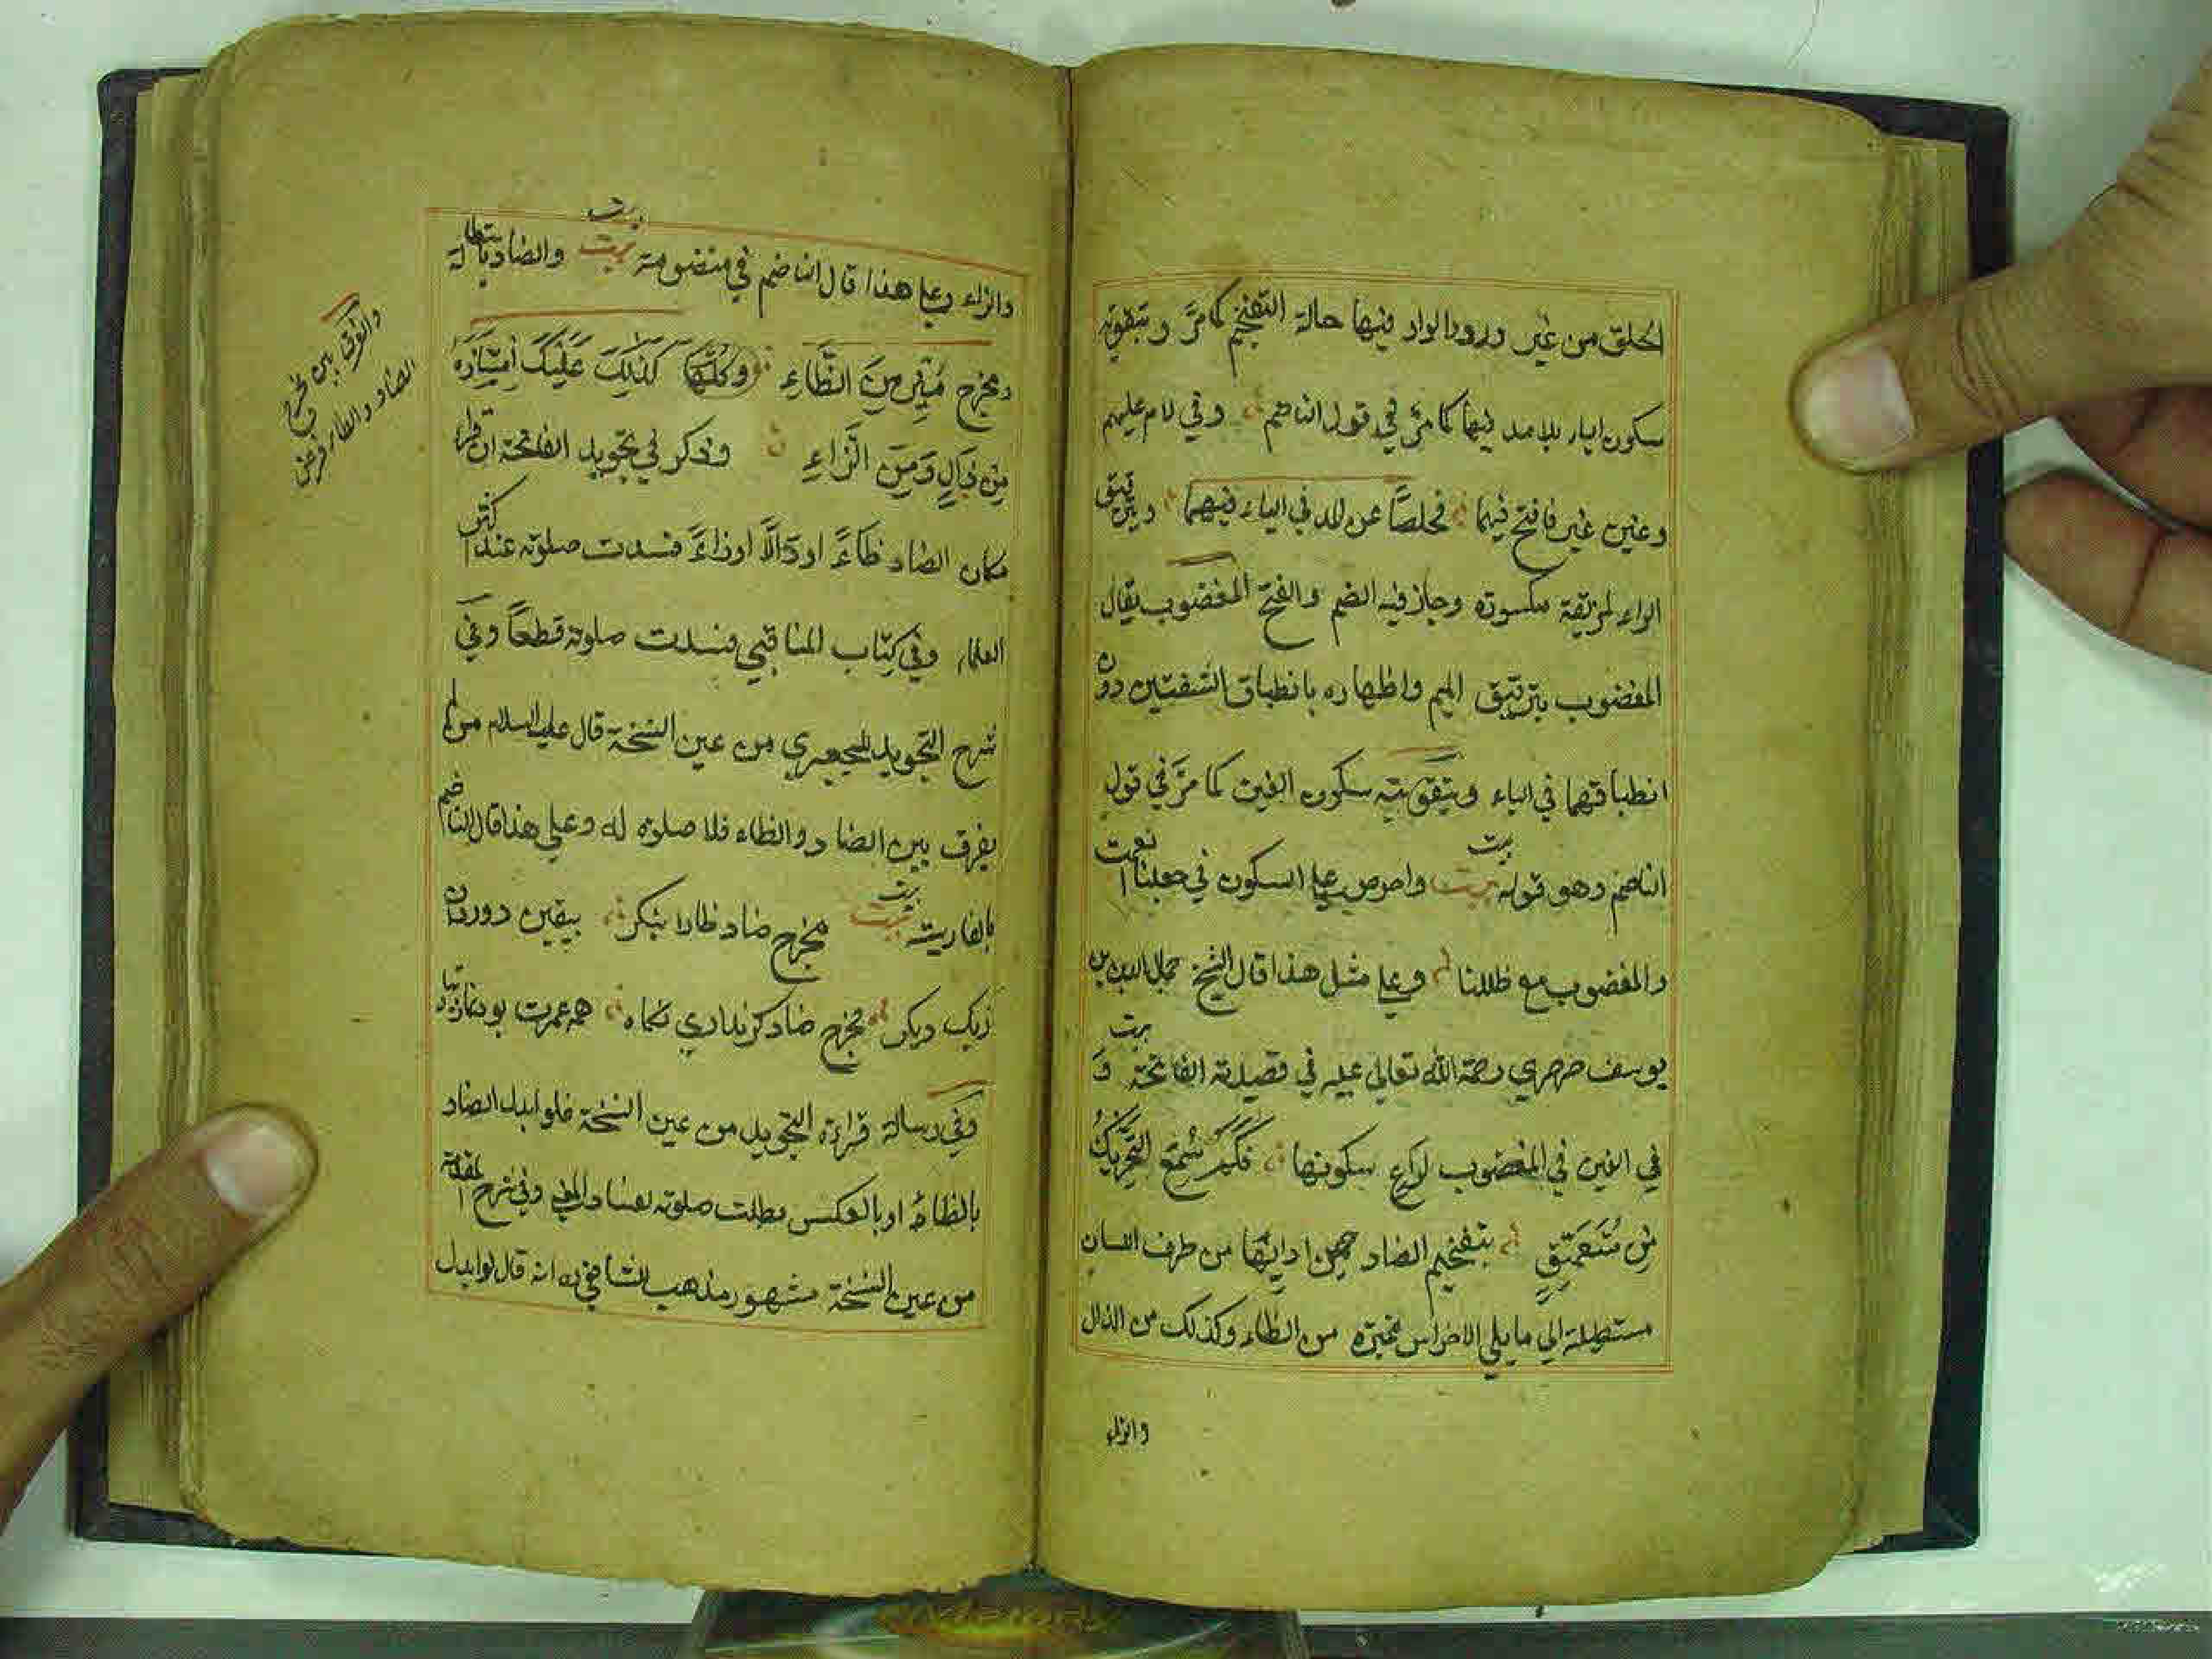 الحلق من غير ورود الواو فيها حالة التفخيم كما مرّ وبتقوية
سكون الياء بلا مد فيها كما مرّ في قول الناضم وفي لام عليهم
وعين غين فافتح فيهما مخلصًا عن المد في الياء فيهما وبترقيق
الراء لمن يقف بسكونه وجاز فيه الضم والفتح المغضوب يقال
المغضوب بترقيق الميم واظهاره بانطباق الشفتين دون
انطباقهما في الباء وبتقويته سكون الغين كما مرّ في قول
الناضم وهو قوله بيت واحرص على السكون في جعلنا انعمت
والمغضوب مع ظللنا وعلى مثل هذا قال الشيخ جمال الدين بن
يوسف صرصري رحمة الله تعالى عليه في قصيدته الفاتحة بيت وَ
في الغين في المغضوب راع سكونها فكم سُمِعَ التحريكُ
مِن مُتَعَمِّقٍ بتفخيم الضاد حين ادائها من طرف اللسان
مستطيلة الى ما يلي الاضراس مميزة من الظاء وكذلك من الذال
والزاء
والزاء وعلى هذا قال الناضم في منضومته بيت والضاد باستطالة
ومخرج مَيِّز مِنَ الظَّاءِ وكلها كَذَلِكَ عَلَيْكَ امتيازَه
مِن ذَالٍ وَمِنَ الزَّاءِ وذكر في تجويد الفاتحة ان قرأ
مكان الضاد ظاءً او ذالاً او زاءً فسدت صلوته عند اكثر
العلماء وفي كتاب المناقبي فسدت صلوته قطعاً وفي
شرح التجويد للجعبري من عين النسخة قال عليه السلام من لم
يفرق بين الضاد والظاء فلا صلوة له وعلى هذا قال الناضم
بالفارسية بيت مخرج ضاد ظا را بنكر بيقين دوردان
زيك ديكر مخرج ضاد كر نداري نكاه همه عمرت بود نماز تباه
وفي رسالة قراءة التجويد من عين النسخة فلو ابدل الضاد
بالظاء او بالعكس بطلت صلوته لفساد المعنى وفي شرح المقدمة
من عين النسخة مشهور مذهب الشافعي ره انه قال لو ابدل
والفرق بين مخرج
الضاد والظاء فرض